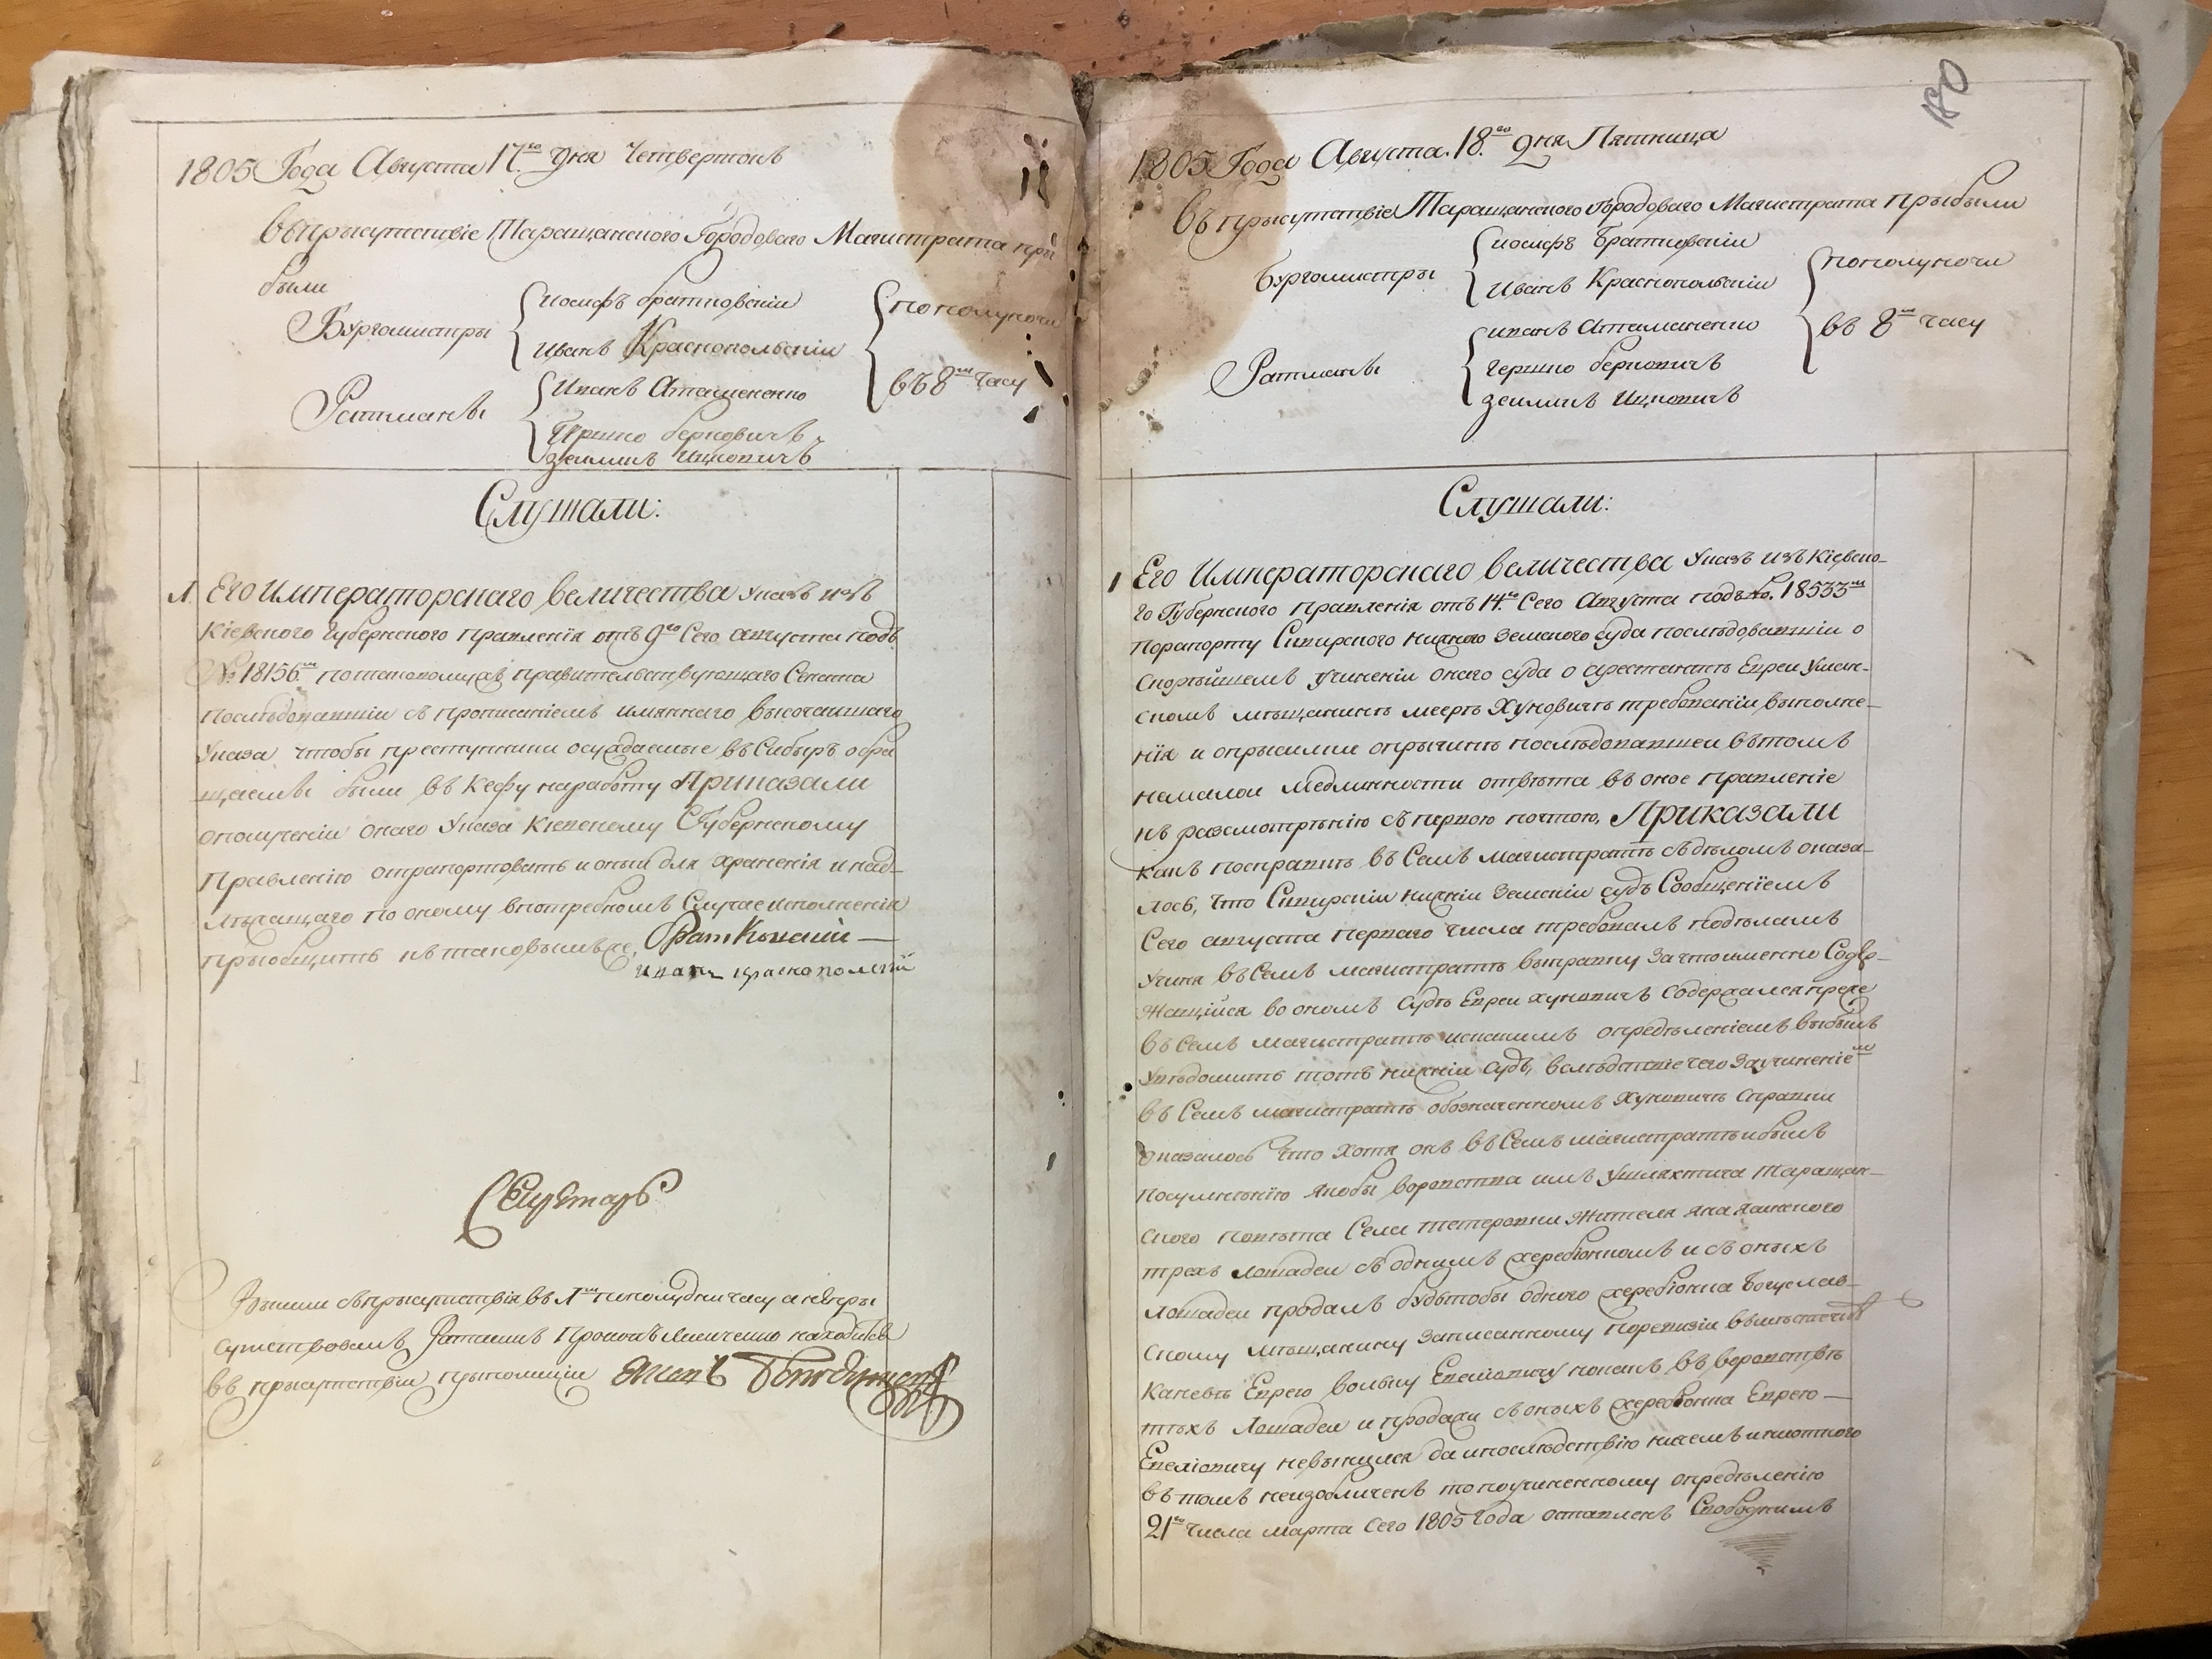 1805 Года Августа 17.го дня Четвертокъ
въ присутствіе Таращанского Городоваго Магистрата при
были
Бургомистры
иосифъ братковскіи
Иванъ Краснопольскіи
пополуночи
въ 8м часу
Ратманы
Иванъ Атаманенко
Гершко берковичъ
зеиликъ Ицковичъ
Слушали:
1. Его Императорскаго величества Указъ изъ
Кіевского Губернского правленія отъ 9го Сего августа подъ
№ 18156м правительствующаго Сената
последовавшіи съ прописаніемъ имяннаго высочаишаго
Указа чтобы преступники осуждаемые въ Сибиръ обра
щаемы были въ Кефу наработу Приказали
ополученіи онаго Указа Кіевскому Губернскому
Правленію отрапортовать и оныи для храненія и над-
лежащаго по оному впотребномъ Случае исполненія
пріобщить къ таковымъ же. Братковскіи
иванъ краснополскїй
Секретарь
Вышли съ присутствія въ 1м пополудни часу а не при
сутствовалъ Ратманъ
въ присутствіи
180
1805 Года Августа. 18.го дня Пятница
въ присутствіе Таращанского Городоваго Магистрата прибыли
Бургомистры
иосифъ Братковскіи
Иванъ Краснопольскіи
пополуночи
въ 8м часу
Ратманы
иванъ Атаманенко
гершко берковичъ
зеиликъ Ицковичъ
Слушали:
1 Его Императорскаго величества Указъ изъ Кіевско-
го Губернского правленія отъ 14.го Сего Августа подъ №. 18533м
порапорту Сквирского нижнего Земского суда последовавшіи о
скореишемъ учиненіи онаго суда о арестанте Евреи Уман-
скомъ мещанине меере Хуновиче требованіи выполне-
нія и оприсилки опричине последовавшеи вътомъ
немалои медлиности ответа въ оное правленіе
къ разсмотренію съ первою почтою, Приказали
какъ посправке въ Семъ магистрате съделомъ оказа-
лось, что Сквирскіи нижніи Земскіи судъ Сообщеніемъ
Сего августа перваго числа требовалъ поделамъ
Учиня въ Семъ магистрате выправку За что именно Содер-
жащіися во ономъ суде Евреи хуновичъ Содержался преже
въ Семъ магистрате и какимъ определеніемъ выбылъ
Уведомить тотъ нижніи судъ, вследствіе чего За учиненіем
въ Семъ магистрате обозначенномъ Хуновиче Справки
оказалось что Хотя онъ въ Семъ магистрате и былъ
посумненію якобы воровства имъ Ушляхтича Таращан-
ского повета Села тетеровки жителя
трехъ лошадеи съ однимъ жеребіонкомъ и съ оныхъ
лошадеи продалъ будьтобы одного жеребіонка Богуслав-
скому мещанину Записанному поревизіи въ местечке
Каневе Еврею волку но какъ въ воровстве
техъ лошадеи и продажи съ оныхъ жеребіонка Еврею
невинился да и последствію никемъ
въ томъ неизобличенъ то по учиненному определенію
21го числа марта Сего 1805 года оставленъ Свободнымъ